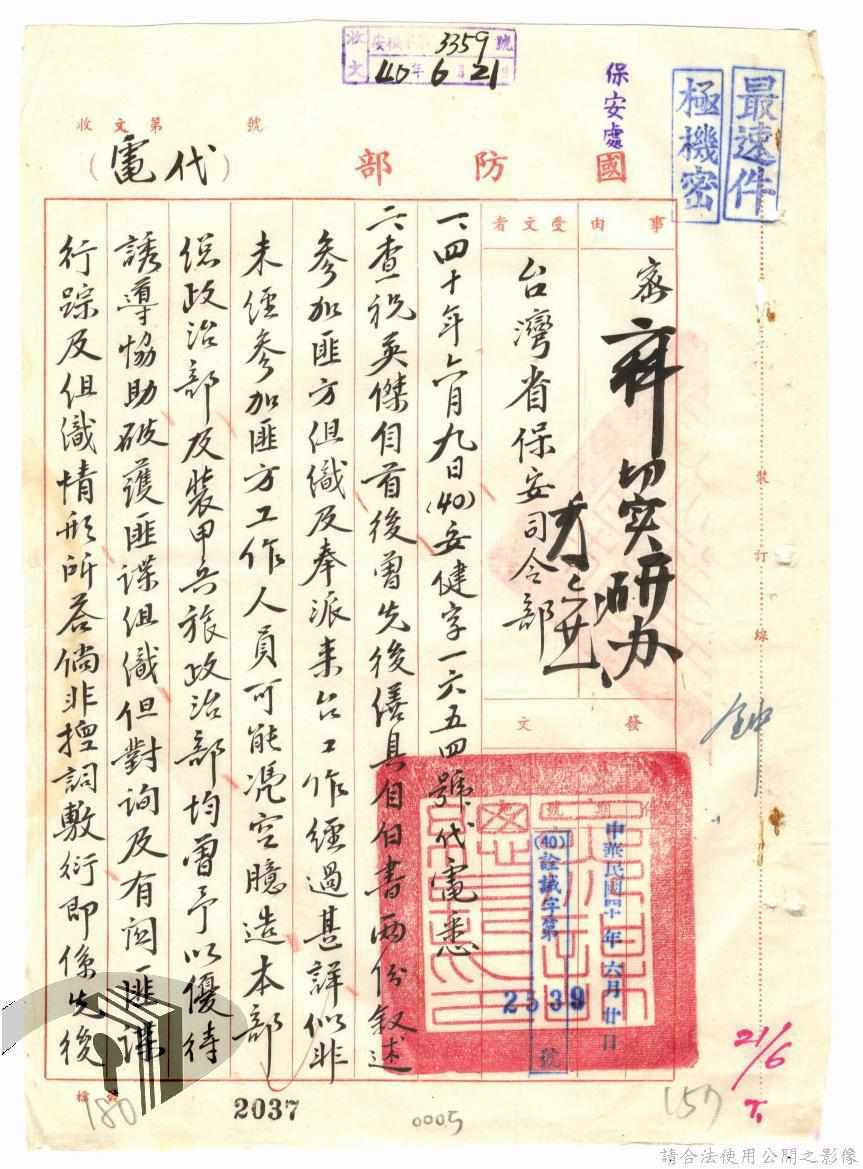 收文 安機字第3359號
40年6月21日
最速件
極機密
保安處
國防部
（代電）
收文第 號
事由
受文者
密
切实研办
台灣省保安司令部
發文
中華民國四十年六月廿日
(40)詮誠字第
2539
號
一、四十年六月九日(40)安健字一六五四號代電悉
二、查祝英傑自首後曾先後繕具自白書兩份叙述
参加匪方组織及奉派来台工作經過甚詳似非
未經参加匪方工作人員可能憑空臆造本部
總政治部及装甲兵旅政治部均曾予以優待
誘導協助破獲匪諜组織但對詢及有関匪諜
行踪及组織情形所答倘非捏詞敷衍即係先後
裝訂線
21/6
檔號
180
2037
0005
157
請合法使用公開之影像